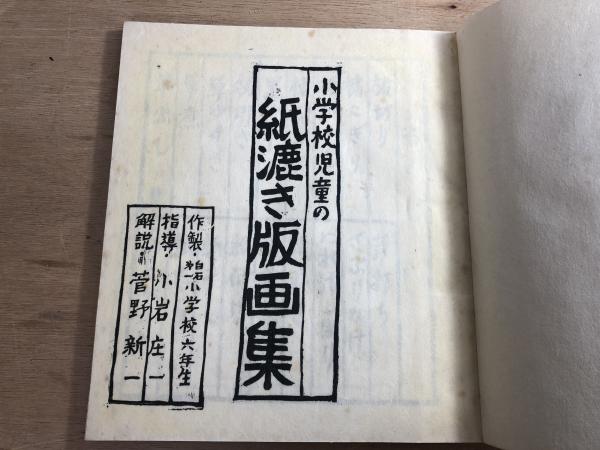 小学校児童の
紙漉き版画集
作製・白石第一小学校六年生
指導・小岩庄一
解説・菅野新一